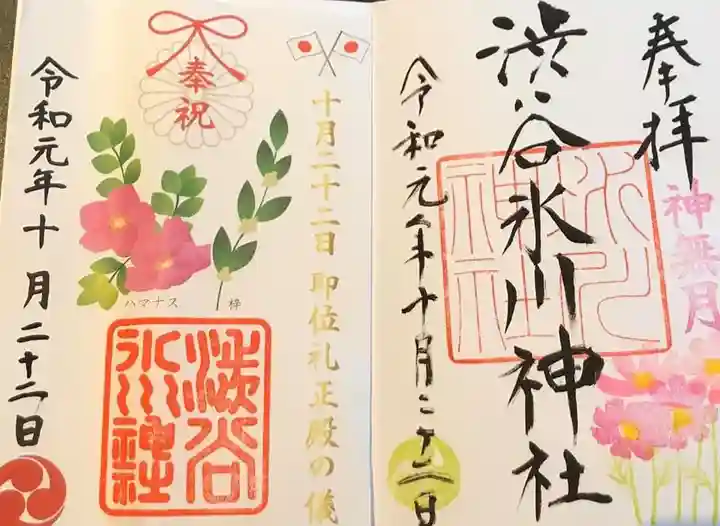 奉拝
神無月
渋谷氷川神社
氷川神社
令和元年十月二十二日
十月二十二日 即位礼正殿の儀
奉祝
ハマナス
梓
渋谷氷川神社
令和元年十月二十二日